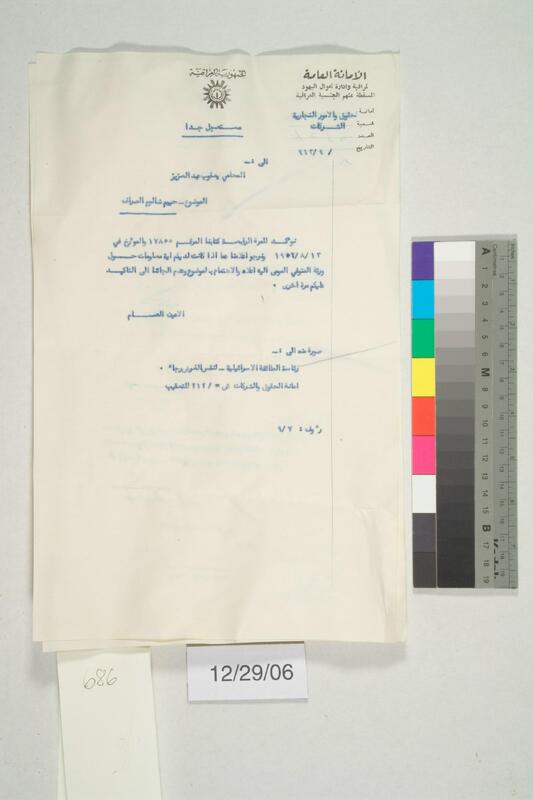 الجمهورية العراقية
الأمانة العامة
لمراقبة وإدارة أموال اليهود
المسقطة عنهم الجنسية العراقية
أمانة الحقوق والامور التجارية
شعبة الشركات
العدد
التاريخ / ٩/ ٩٦٢
مستعجل جدا
الى :-
المحامي يعقوب عبد العزيز
الموضوع - حييم شالوم الصراف
نؤكد للمرة الرابعة كتابنا المرقم ١٧٨٥٥ والمؤرخ في
١٩٥٦/٨/١٣ ونرجو اعلامنا عما اذا كانت لديكم أية معلومات حول
ورثة المتوفي المومى اليه اعلاه والاهتمام بالموضوع وعدم الجائنا الى التأكيد
عليكم مرة اخرى ٠
الامين العام
صورة منه الى :-
رئاسة الطائفة الاسرائيلية - لنفس الغرض رجاء ٠
امانة الحقوق والشركات للتعقيب
ر*وف : ٩/٢
686
12/29/06
A 1 2 3 4 5 6 M 8 9 10 11 12 13 14 15 B 17 18 19
inches